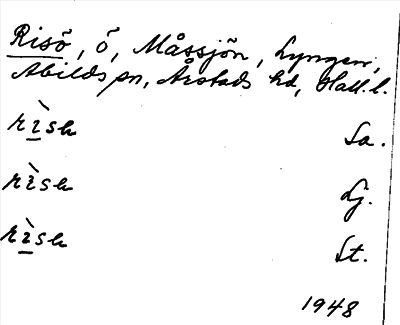 Risö, ö, Måssjön, Lyngen,
Abilds sn, Årstads hd, Hall. l.
rìsə La.
rìsə Lj.
rìsə St.
1948